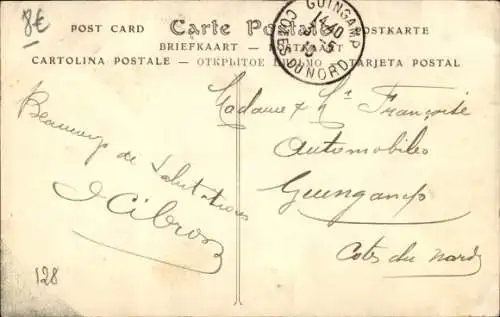 8€
POST CARD Carte Postale POSTKARTE
BRIEFKAART
CARTOLINA POSTALE — ОТКРЫТОЕ ПИСЬМО — TARJETA POSTAL
GUINGAMP
14 40
COTES DU NORD
Beaucoup de Salutations
Madame & Mr Françoise
Automobiles
Guingamp
Cotes du Nord
128